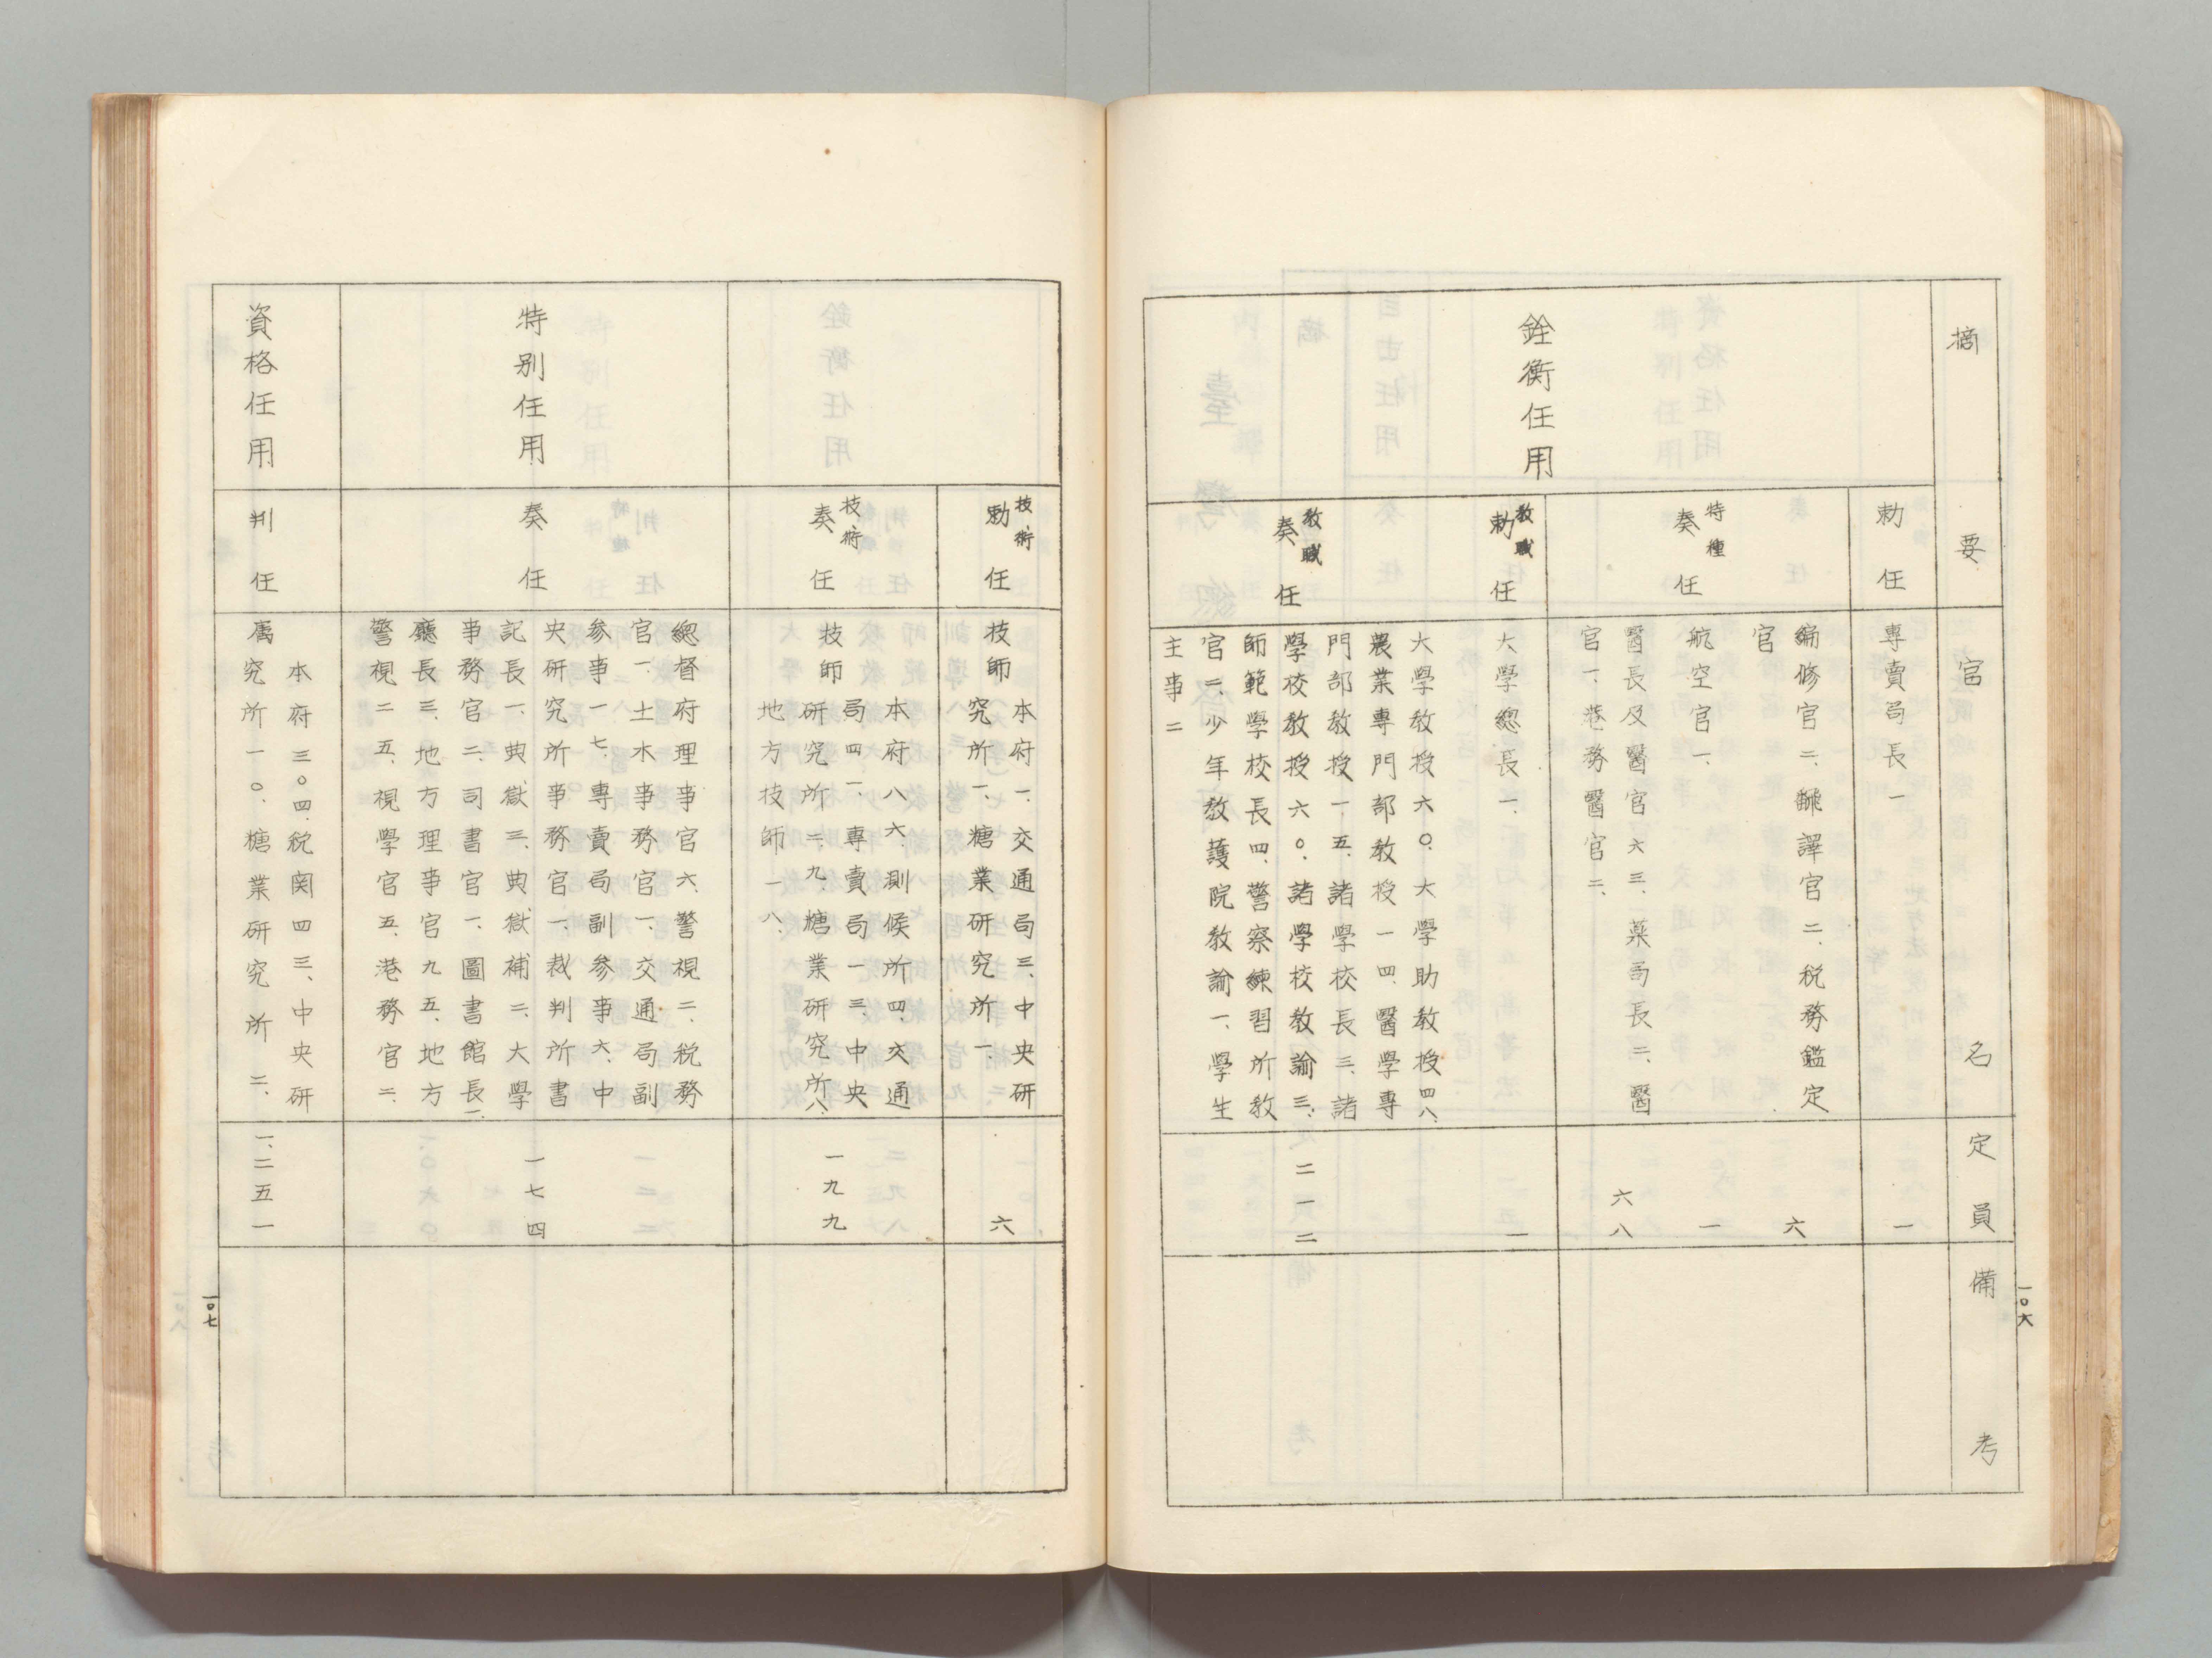 摘要
官名
定員
備考
銓衡任用
勅任
專賣局長一
一
特種
奏任
編修官二、飜譯官二、税務鑑定
官
六
航空官一、
一
醫長及醫官六三、藥局長二、醫
官一、港務醫官二、
六八
教職
勅任
大學總長一、
一
教職
奏任
大學教授六〇、大學助教授四八、
農業專門部教授一四、醫學專
門部教授一五、諸學校長三、諸
學校教授六〇、諸學校教諭三、
師範學校長四、警察練習所教
官二、少年教護院教諭一、學生
主事二
二一二
一〇六
技術
勅任
技師
本府一、交通局三、中央研
究所一、糖業研究所一、
六
技術
奏任
技師
本府八六、測候所四、交通
局四一、專賣局一三、中央
研究所二九、糖業研究所八、
地方技師一八、
一九九
特別任用
奏任
總督府理事官六、警視二、税務
官一、土木事務官一、交通局副
参事一七、專賣局副参事六、中
央研究所事務官一、裁判所書
記長一、典獄三、典獄補二、大學
事務官二、司書官一、圖書館長一、
廳長三、地方理事官九五、地方
警視二五、視學官五、港務官二、
一七四
資格任用
判任
属
本府三〇四、税関四三、中央研
究所一〇、糖業研究所二、
一、二五一
一〇七